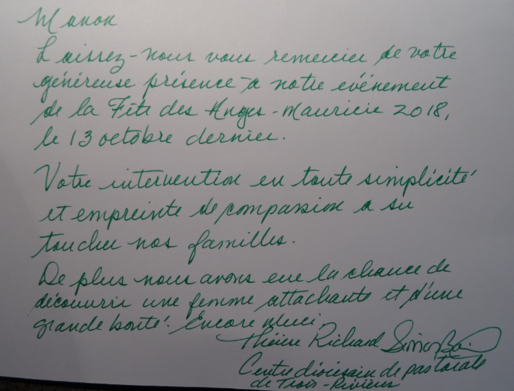 Manon
Laissez-nous vous remercier de votre
généreuse présence à notre événement
de la Fête des Anges-Mauricie 2018,
le 13 octobre dernier.
Votre intervention en toute simplicité
et empreinte de compassion a su
toucher nos familles.
De plus nous avons eue la chance de
découvrir une femme attachante et d'une
grande bonté. Encore merci,
Richard Simon
Centre diocésain de pastorale
de Trois-Rivières